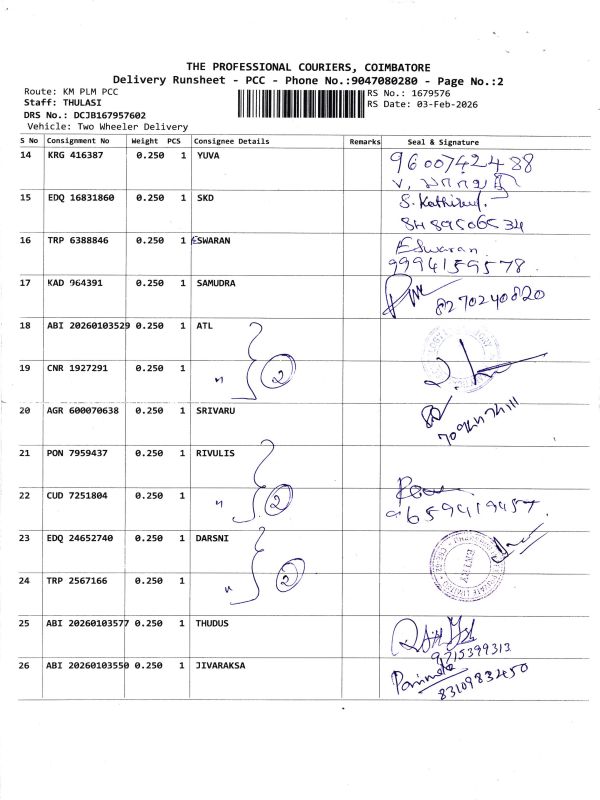 THE PROFESSIONAL COURIERS, COIMBATORE
Delivery Runsheet - PCC - Phone No.:9047080280 - Page No.:2
Route: KM PLM PCC
RS No.: 1679576
Staff: THULASI
RS Date: 03-Feb-2026
DRS No.: DCJB167957602
Vehicle: Two Wheeler Delivery
S No Consignment No Weight PCS Consignee Details Remarks Seal & Signature
14 KRG 416387 0.250 1 YUVA 9600742488
15 EDQ 16831860 0.250 1 SKD
16 TRP 6388846 0.250 1 ESWARAN Eswaran
9994159578
17 KAD 964391 0.250 1 SAMUDRA 8270240820
18 ABI 20260103529 0.250 1 ATL
19 CNR 1927291 0.250 1 " 2
20 AGR 600070638 0.250 1 SRIVARU
21 PON 7959437 0.250 1 RIVULIS
22 CUD 7251804 0.250 1 " 2
9659419457
23 EDQ 24652740 0.250 1 DARSNI
24 TRP 2567166 0.250 1 " 2
25 ABI 20260103577 0.250 1 THUDUS
9715399313
26 ABI 20260103550 0.250 1 JIVARAKSA
8310983450